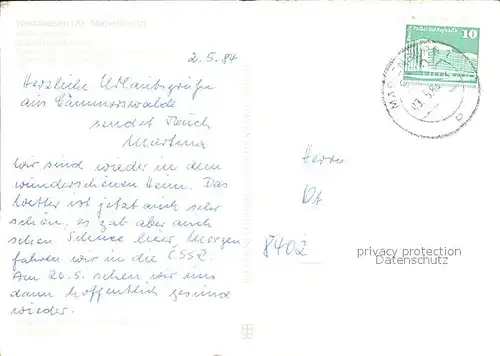 Neuhausen (Kr. Marienberg)
2.5.84
Herzliche Urlaubsgrüße
aus Cämmerswalde
sendet Euch
Martina
Wir sind wieder in dem
wunderschönen Heim. Das
Wetter ist jetzt auch sehr
schön, es gab aber auch
schon Schnee hier. Morgen
fahren wir in die ČSSR.
Am 20.5. sehen wir uns
dann hoffentlich gesund
wieder.
10
Herrn
8402
privacy protection
Datenschutz